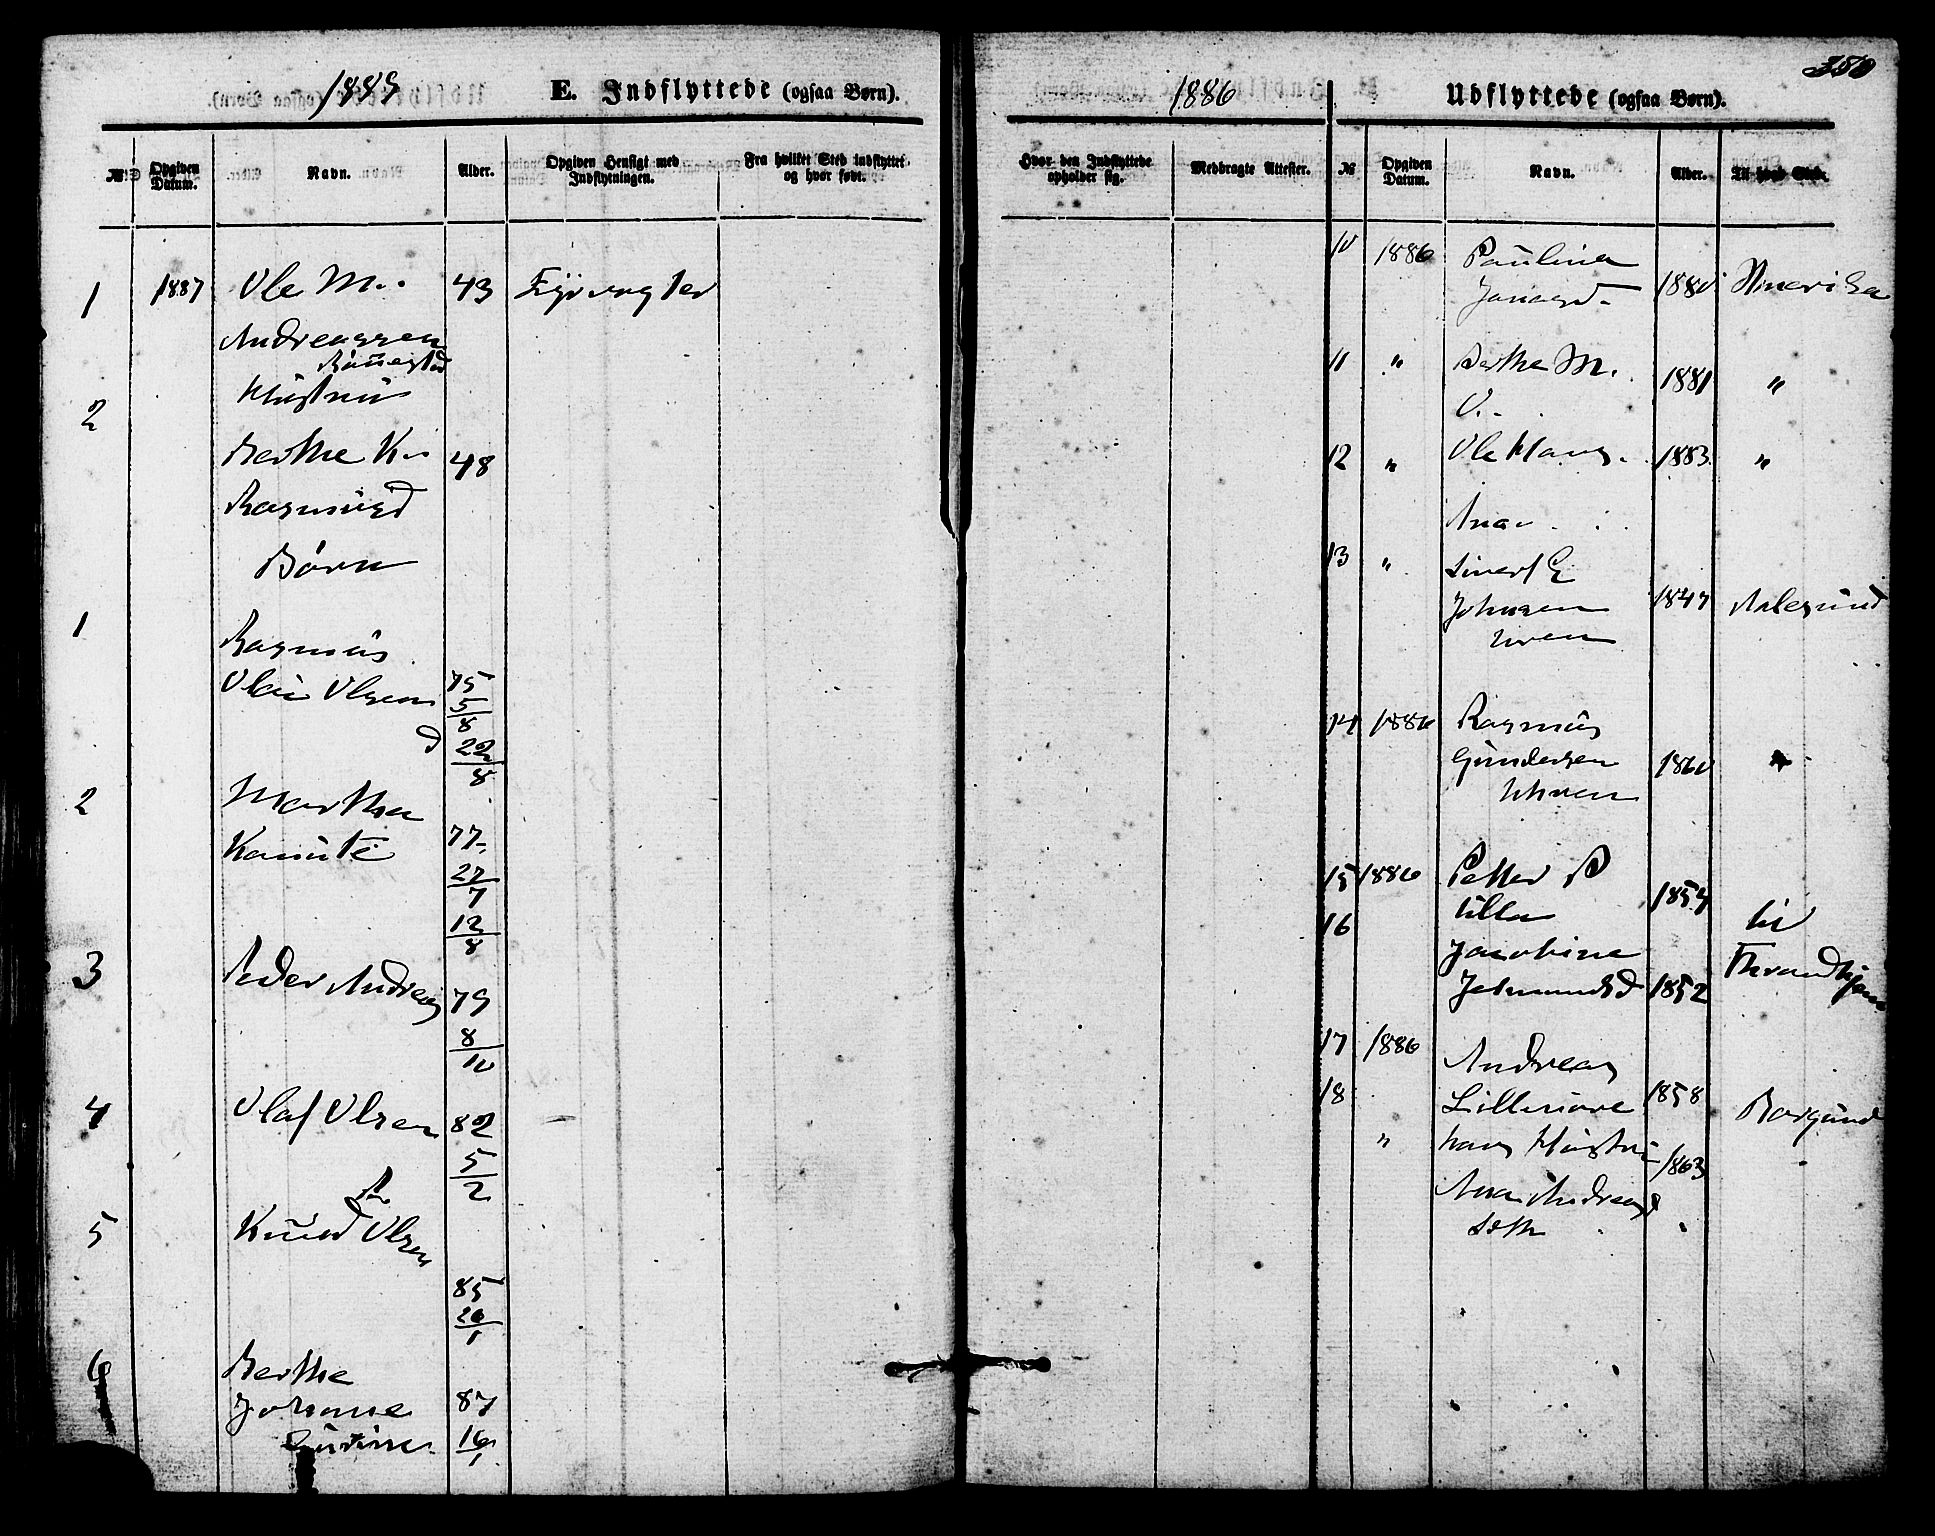 1889
E. Indflyttede (ogsaa Børn).
No.
Opgiven Datum.
Navn.
Alder.
Opgiven Hensigt med Indflytningen.
Fra hvilket Sted indflyttet, og hvor født.
1 1887 Ole M. 43 Fyrvogter
Andreassen
Hustru
2
Berthe K. 48
Rasmusd
Børn
1
Rasmus
Olai Olsen 75
5/8
d 22/8
2 Martha
Kanute 77
27/7
12/8
3 Peder Andreas 79
8/10
4 Olaf Olsen 82
5/2
5 Knud Olsen
85
26/1
6 Berthe
Johanne 87
16/1
1886
350
Udflyttede (ogsaa Børn).
Hvor den Indflyttede opholder sig.
Medbragte Attester.
No
Opgiven Datum.
Navn.
Alder.
Til hvad Sted.
10 1886 Pauline
Jonasd. 1880 Amerika
11 " Berthe M. 1881 "
O.
12 " Ole Hans. 1883 "
Ana
13 " Sivert E
Johnsen 1847 Aalesund
14 1886 Rasmus
Gundersen 1860 "
15 1886 Petter P
Ulla 1854 til
16
Jacobine Throndhjem
Jetmundsd 1852
17 1886 Andreas
18 Lillenore 1858 Borgund
" hans Hustru 1863
Ana Andreasd
Seth